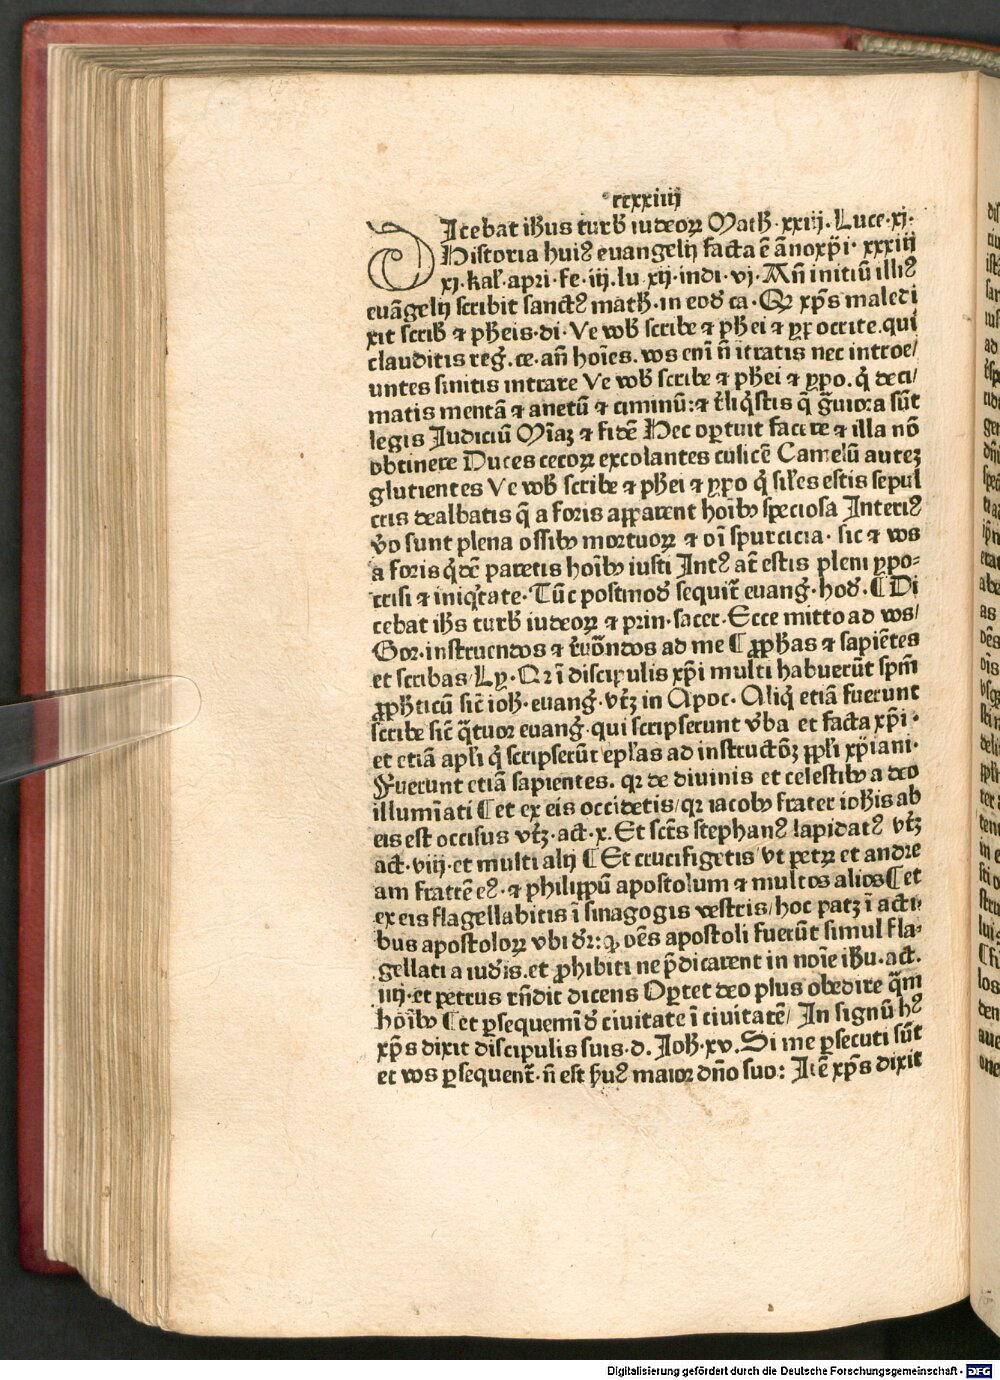 ccxxiiij
DIcebat ihus turb iudeoꝝ Math·xxiij·Luce·xj·
Historia huiꝰ euangelij facta ē ānoxp̄i·xxxiij
xj·kal·apri·fe·iij·lu·xij·indi·vj·An̄ initiū illiꝰ
euāgelij scribit sanctꝰ math·in eod ca·Qꝛ xp̄s maledi
xit scrib ⁊ pheis·di·Ve vob scribe ⁊ phei ⁊ ypocrite.qui
clauditis reg.ce.an̄ hoīes.vos eni n̄ ītratis nec introe/
untes sinitis intrare Ve vob scribe ⁊ phei ⁊ ypo.q̇ deci/
matis mentā ⁊ anetū ⁊ ciminū:⁊ r̄liq̇stis q̄ g̃uiora sūt
legis Iudiciū Mīaꝫ ⁊ fidē Hec oꝑtuit facere ⁊ illa nō
obtinere Duces cecoꝝ excolantes culicē Camelū autez
glutientes Ve vob scribe ⁊ phei ⁊ ypo q̇ siles estis sepul
cris dealbatis q̄ a foris apparent hoībꝰ speciosa Interiꝰ
v̄o sunt plena ossibꝰ mortuoꝝ ⁊ oī spurcicia·sic ⁊ vos
a foris q̇dē paretis hoībꝰ iusti Intꝰ at̄ estis pleni ypo-
crisi ⁊ iniq̇tate·Tūc postmod sequit̄ euang·hod·¶Di
cebat ihs turb iudeoꝝ ⁊ prin·sacer·Ecce mitto ad vos/
Gor·instruendos ⁊ ad me ¶ꝓphas ⁊ sapiētes
et scribas/Ly·Qꝛ ī discipulis xp̄i multi habuerūt spm̄
ꝓphticū sic ioh·euang·vtꝫ in Apoc·Aliq̇ etiā fuerunt
scribe sic q̄tuor euang·qui scripserunt v̄ba et facta xp̄i·
et etiā apl̄i q̇ scripserūt epl̄as ad instructōꝫ ppl̄i xp̄iani·
Fuerunt etiā sapientes.qꝛ de diuinis et celestibꝰ a deo
illumīati ¶et ex eis occidetis/qꝛ iacobꝰ frater iohis ab
eis est occisus vtꝫ·act·x·Et sct̄s stephanꝰ lapidatꝰ vtꝫ
act·viij·et multi alij ¶Et crucifigetis/vt petꝝ et andre
am fratrē eꝰ·⁊ philippū apostolum ⁊ multos alios¶et
ex eis flagellabitis ī sinagogis vestris/hoc patꝫ ī acti
bus apostoloꝝ vbi dr̄:ꝙ oēs apostoli fuerūt simul fla-
gellati a iudis.et ꝓhibiti ne p̄dicarent in noīe ihu.act.
iiij·et petrus rn̄dit dicens Oꝑtet deo plus obedire q̄m
hoībꝰ ¶et ꝑsequemī d ciuitate ī ciuitatē/ In signū hꝰ
xp̄s dixit discipulis suis·d.Ioh·xv.Si me ꝑsecuti sūt
et vos ꝑsequent̄·n̄ est huꝰ maior dn̄o suo: Itē xp̄s dixit
Digitalisierung gefördert durch die Deutsche Forschungsgemeinschaft - DFG